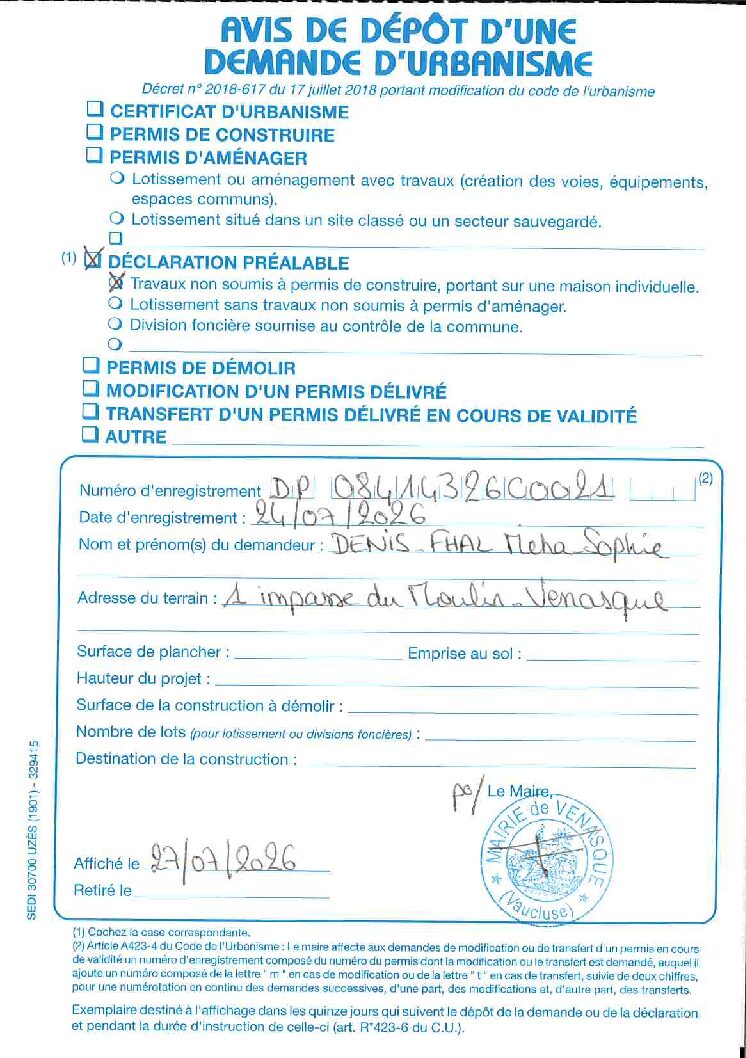 AVIS DE DÉPÔT D'UNE
DEMANDE D'URBANISME
Décret n° 2018-617 du 17 juillet 2018 portant modification du code de l'urbanisme
CERTIFICAT D'URBANISME
PERMIS DE CONSTRUIRE
PERMIS D'AMÉNAGER
Lotissement ou aménagement avec travaux (création des voies, équipements,
espaces communs).
Lotissement situé dans un site classé ou un secteur sauvegardé.
(1) DÉCLARATION PRÉALABLE
Travaux non soumis à permis de construire, portant sur une maison individuelle.
Lotissement sans travaux non soumis à permis d'aménager.
Division foncière soumise au contrôle de la commune.
PERMIS DE DÉMOLIR
MODIFICATION D'UN PERMIS DÉLIVRÉ
TRANSFERT D'UN PERMIS DÉLIVRÉ EN COURS DE VALIDITÉ
AUTRE
Numéro d'enregistrement DP 084 143 26 00021 (2)
Date d'enregistrement : 24/07/2026
Nom et prénom(s) du demandeur : DENIS Sophie
Adresse du terrain : 1 impasse du Moulin - Venasque
Surface de plancher : Emprise au sol :
Hauteur du projet :
Surface de la construction à démolir :
Nombre de lots (pour lotissement ou divisions foncières) :
Destination de la construction :
po/ Le Maire,
MAIRIE de VENASQUE
(Vaucluse)
Affiché le 27/07/2026
Retiré le
SEDI 30700 UZÈS (1901) - 329415
(1) Cochez la case correspondante.
(2) Article A423-4 du Code de l'Urbanisme : Le maire affecte aux demandes de modification ou de transfert d'un permis en cours
de validité un numéro d'enregistrement composé du numéro du permis dont la modification ou le transfert est demandé, auquel il
ajoute un numéro composé de la lettre "m" en cas de modification ou de la lettre "t" en cas de transfert, suivie de deux chiffres,
pour une numérotation en continu des demandes successives, d'une part, des modifications et, d'autre part, des transferts.
Exemplaire destiné à l'affichage dans les quinze jours qui suivent le dépôt de la demande ou de la déclaration
et pendant la durée d'instruction de celle-ci (art. R*423-6 du C.U.).